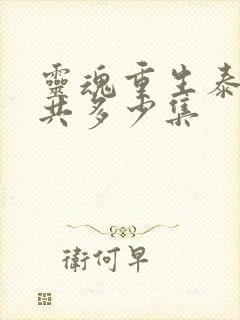 靈魂重生泰
共多少集
衛何早